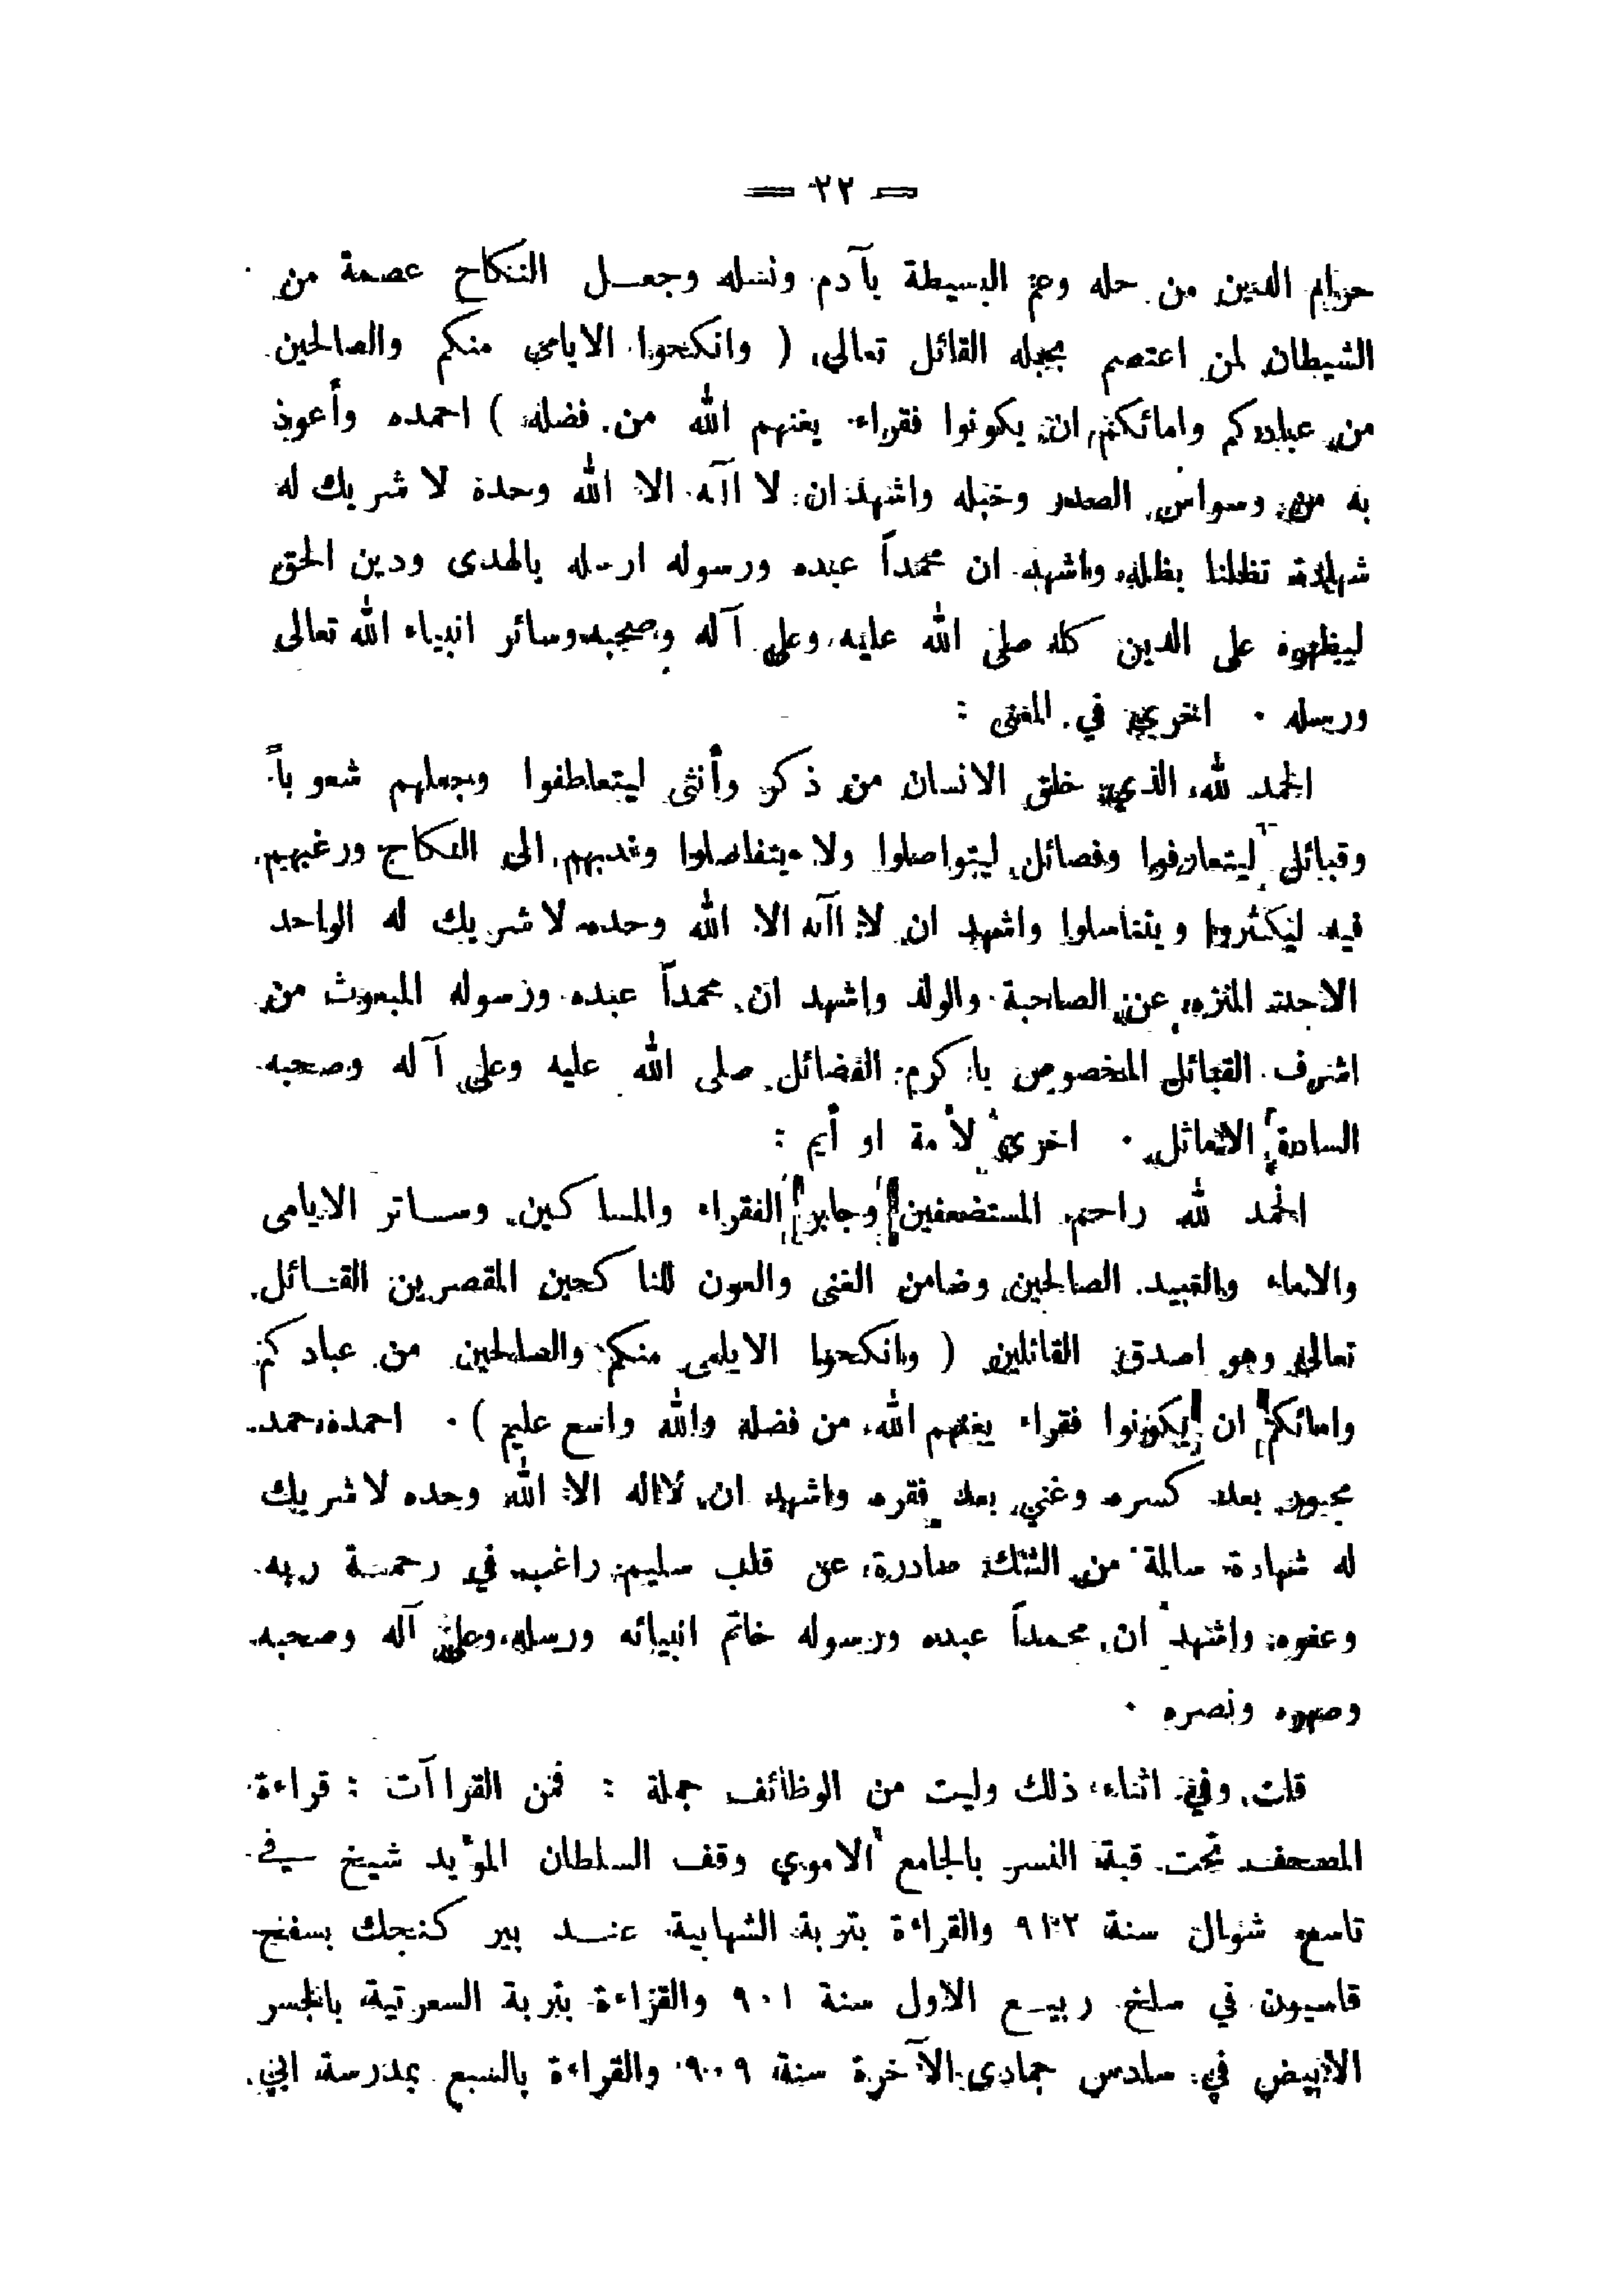 = ٢٢ =
حرام الدين من حله وعمر البسيطة بآدم ونسله وجعل النكاح عصمة من
الشيطان لمن اعتصم بحبله القائل تعالى ( وانكحوا الايامى منكم والصالحين
من عبادكم وامائكم ان يكونوا فقراء يغنهم الله من فضله ) احمده وأعوذ
به من وسواس الصدر وخبله واشهد ان لا اآله الا الله وحدة لا شريك له
شهادة تظلنا بظله واشهد ان محمداً عبده ورسوله ارسله بالهدى ودين الحق
ليظهره على الدين كله صلى الله عليه وعلى آله وصحبه وسائر انبياء الله تعالى
ورسله ٠ اخرى في المعنى :
الحمد لله الذي خلق الانسان من ذكر وأنثى ليتعاطفوا وجعلهم شعوباً
وقبائل ليتعارفوا وفصائل ليتواصلوا ولا يتفاصلوا وندبهم الى النكاح ورغبهم
فيه ليكثروا ويتناسلوا واشهد ان لا اآله الا الله وحده لا شريك له الواحد
الاحد المنزه عن الصاحبة والولد واشهد ان محمداً عبده ورسوله المبعوث من
اشرف القبائل المخصوص باكرم الفضائل صلى الله عليه وعلى آله وصحبه
السادة الاماثل ٠ اخرى لأمة او أيم :
الحمد لله راحم المستضعفين وجابر الفقراء والمساكين وساتر الايامى
والاماء والعبيد الصالحين وضامن الغنى والعون للناكحين المقصرين القائل
تعالى وهو اصدق القائلين ( وانكحوا الايامى منكم والصالحين من عبادكم
وامائكم ان يكونوا فقراء يغنهم الله من فضله والله واسع عليم ) ٠ احمده حمد
مجبور بعد كسره وغني بعد فقره واشهد ان لااله الا الله وحده لا شريك
له شهادة سالمة من الشك صادرة عن قلب سليم راغب في رحمة ربه
وعفوه واشهد ان محمداً عبده ورسوله خاتم انبيائه ورسله وعلى آله وصحبه
وصهره ونصره ٠
قلت وفي اثناء ذلك وليت من الوظائف جملة : فمن القراآت : قراءة
المصحف تحت قبة النسر بالجامع الاموي وقف السلطان المؤيد شيخ في
تاسع شوال سنة والقراءة بتربة الشهابية عند بير كنجك بسفح
قاسيون في سلخ ربيع الاول سنة ٩٠١ والقراءة بتربة السعرتية بالجسر
الابيض في سادس جمادى الآخرة سنة ٩٠٩ والقراءة بالسبع بمدرسة ابي